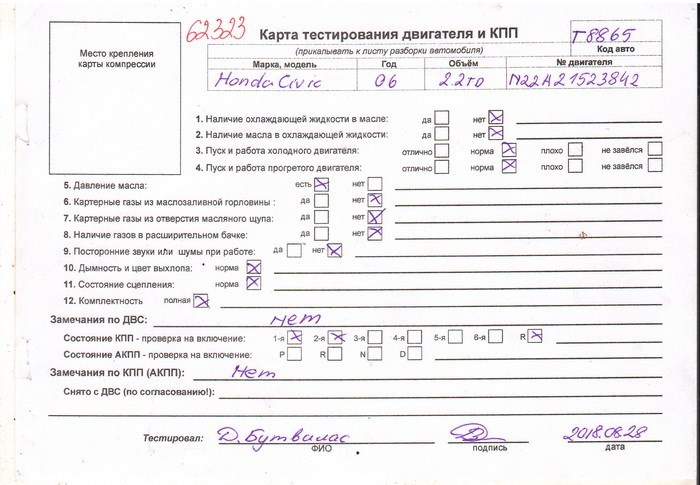 62323
Карта тестирования двигателя и КПП
T8865
(прикалывать к листу разборки автомобиля)
Код авто
Место крепления
карты компрессии
Марка, модель Год Объём № двигателя
Honda Civic 06 2.2TD N22A21523842
1. Наличие охлаждающей жидкости в масле: да нет
2. Наличие масла в охлаждающей жидкости: да нет
3. Пуск и работа холодного двигателя: отлично норма плохо не завёлся
4. Пуск и работа прогретого двигателя: отлично норма плохо не завёлся
5. Давление масла: есть нет
6. Картерные газы из маслозаливной горловины : да нет
7. Картерные газы из отверстия масляного щупа: да нет
8. Наличие газов в расширительном бачке: да нет
9. Посторонние звуки или шумы при работе: да нет
10. Дымность и цвет выхлопа: норма
11. Состояние сцепления: норма
12. Комплектность полная
Замечания по ДВС: нет
Состояние КПП - проверка на включение: 1-я 2-я 3-я 4-я 5-я 6-я R
Состояние АКПП - проверка на включение: P R N D
Замечания по КПП (АКПП): Нет
Снято с ДВС (по согласованию!):
Тестировал: Д. Бутвилас 2018.08.28
ФИО подпись дата